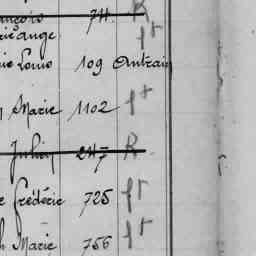 ançois 74 R
rie ange ft
rie Louis 109 Antrain
Marie 1102 ft
Julien 247 R
e Frédéric 725 ft
h Marie 756 ft